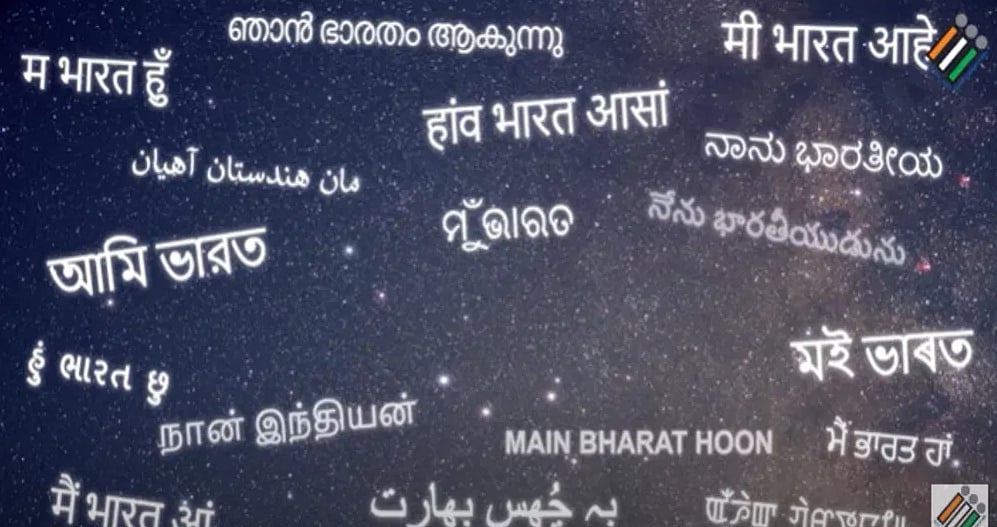 ഞാൻ ഭാരതം ആകുന്നു
मी भारत आहे
म भारत हुँ
हांव भारत आसां
ನಾನು ಭಾರತೀಯ
مان هندستان آهيان
ମୁଁ ଭାରତ
నేను భారతీయుడును
আমি ভারত
મই ভাৰত
હું ભારત છુ
நான் இந்தியன்
MAIN BHARAT HOON
ਮੈਂ ਭਾਰਤ ਹਾਂ.
मैं भारत आं
بہ چُھس بھارت